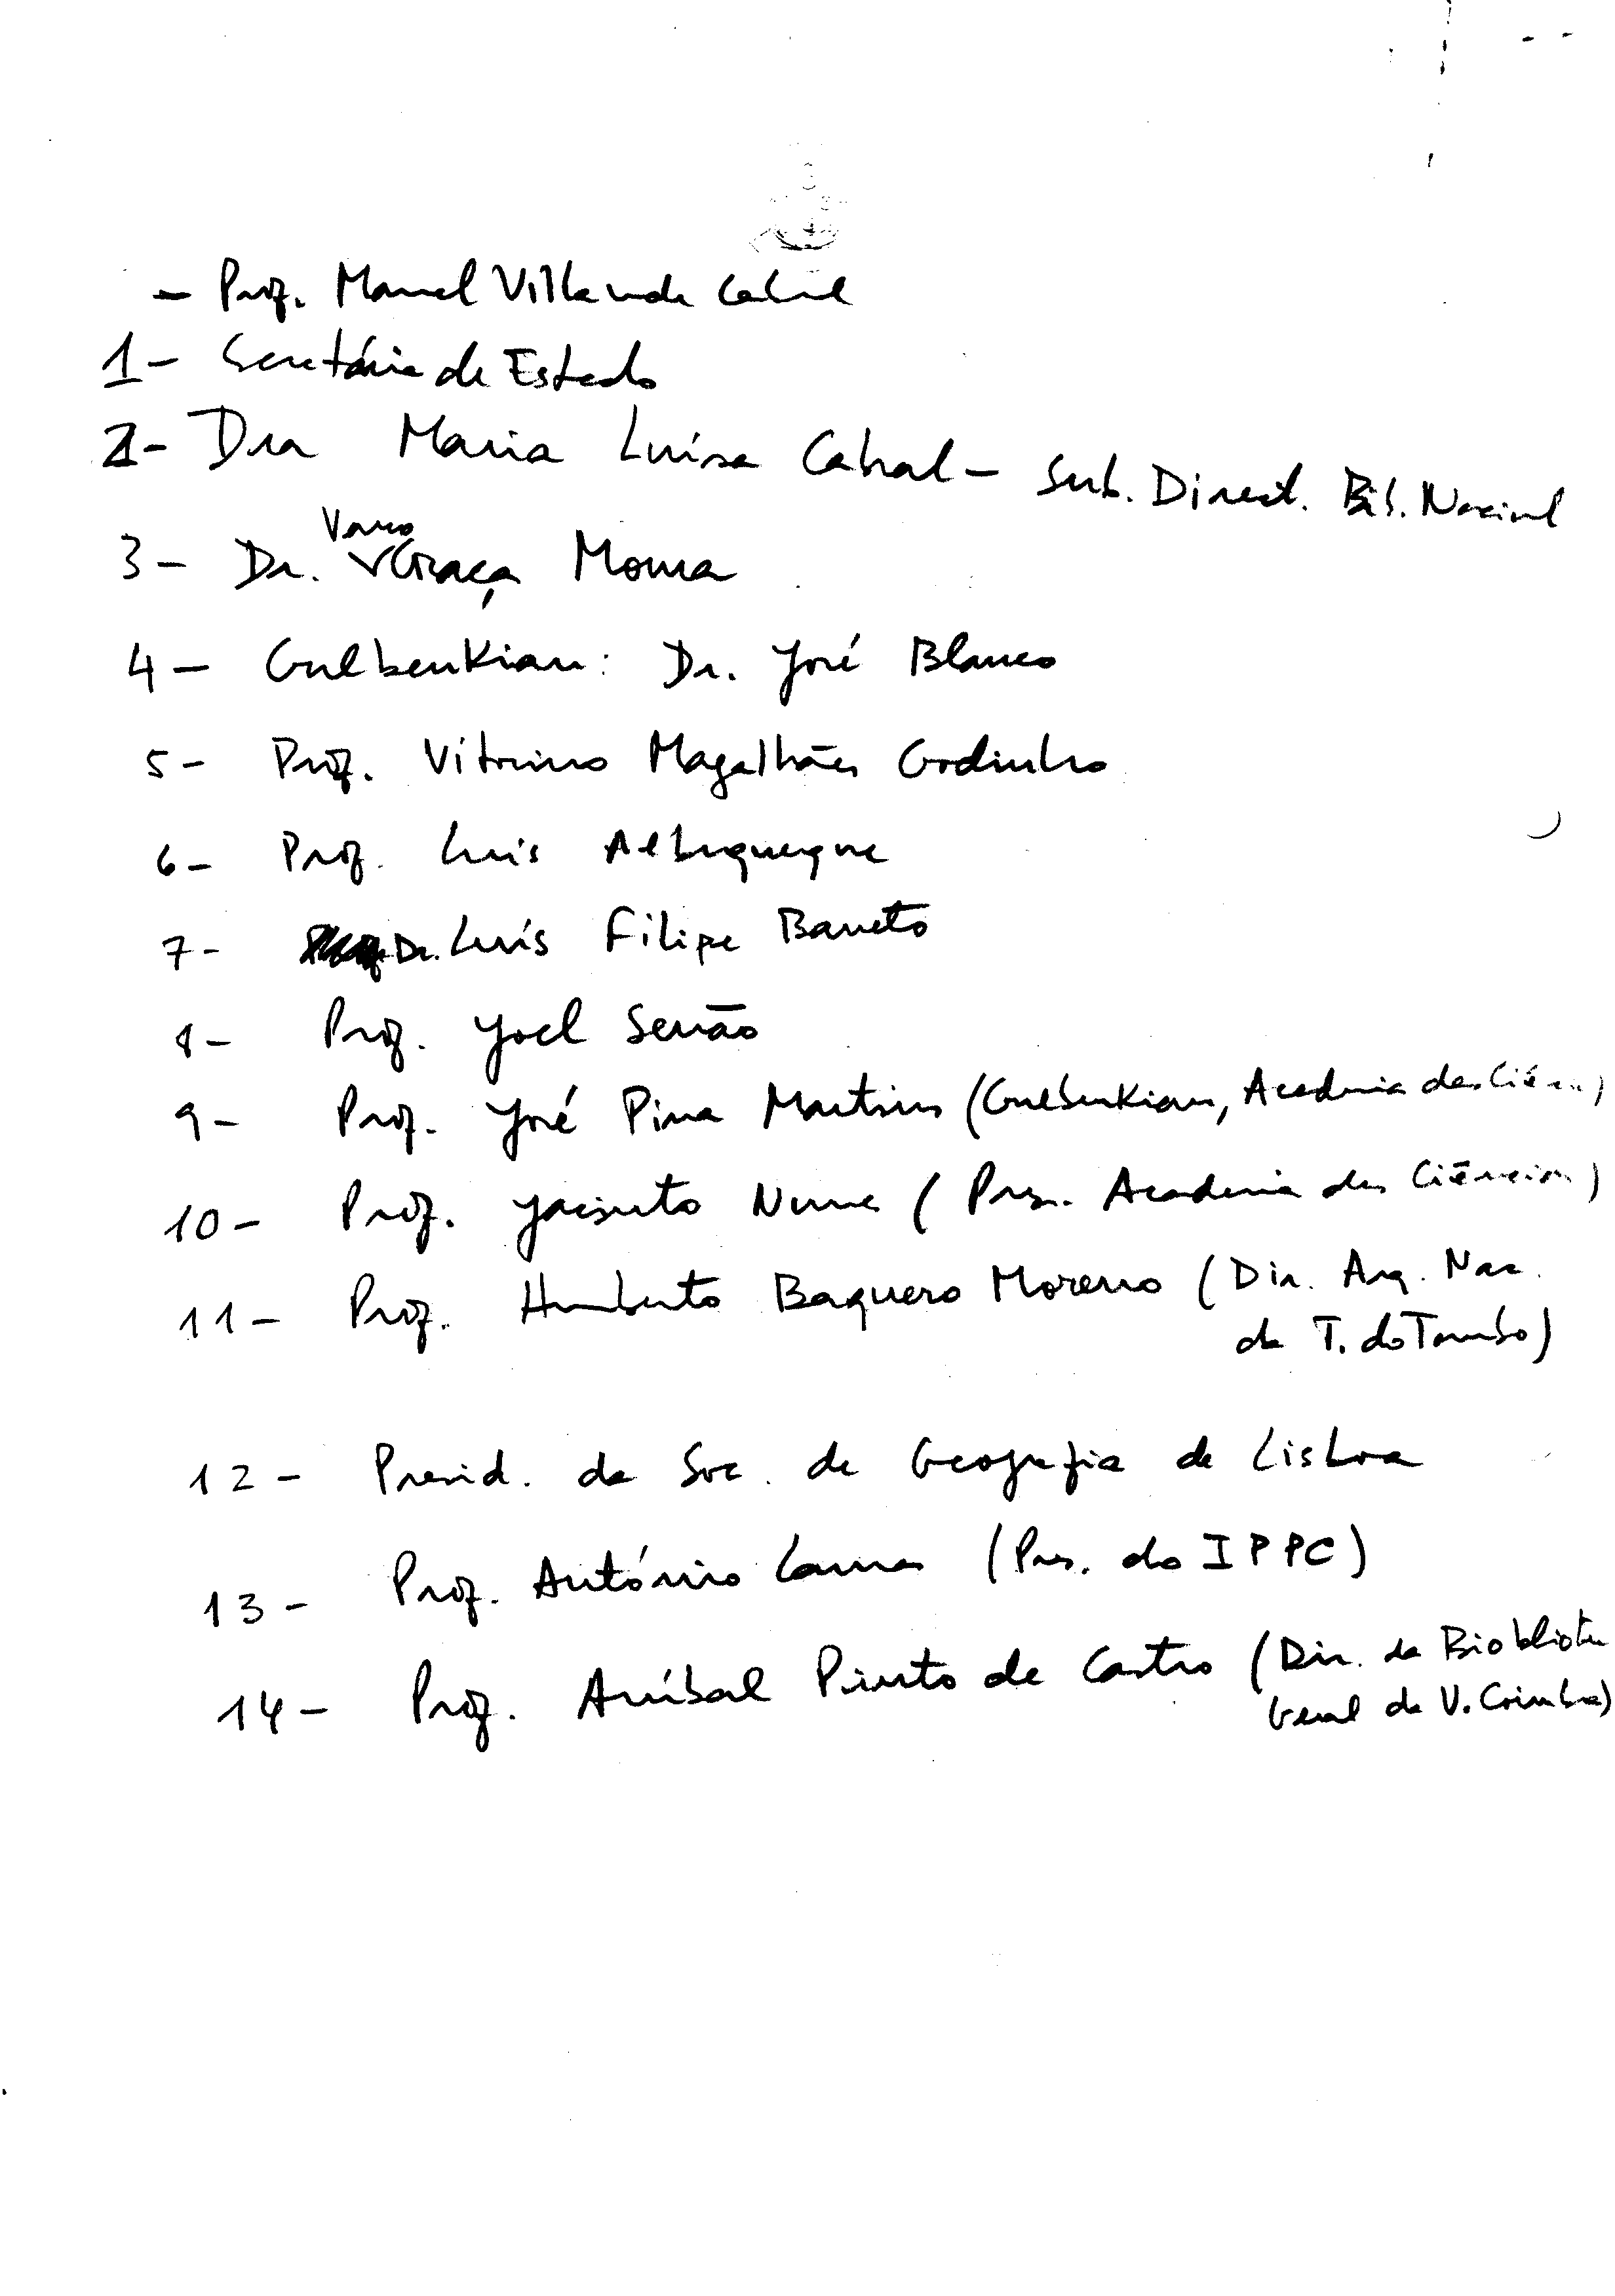 - Prof. Manuel Villaverde Cabral
1- Secretário de Estado
2- Dra Maria Luísa Cabral - Sub. Direct. Bib. Nacional
3- Dr. Vasco Graça Moura
4- Gulbenkian: Dr. José Blanco
5- Prof. Vitorino Magalhães Godinho
6- Prof. Luís Albuquerque
7- Dr. Luís Filipe Barreto
8- Prof. Joel Serrão
9- Prof. José Pina Martins (Gulbenkian, Academia das Ciên...)
10- Prof. Jacinto Nunes (Pres. Academia das Ciências)
11- Prof. Humberto Baquero Moreno (Dir. Arq. Nac.
da T. do Tombo)
12- Presid. da Soc. de Geografia de Lisboa
13- Prof. António Lamas (Pres. do IPPC)
14- Prof. Aníbal Pinto de Castro (Dir. da Biobliote
Geral da U. Coimbra)